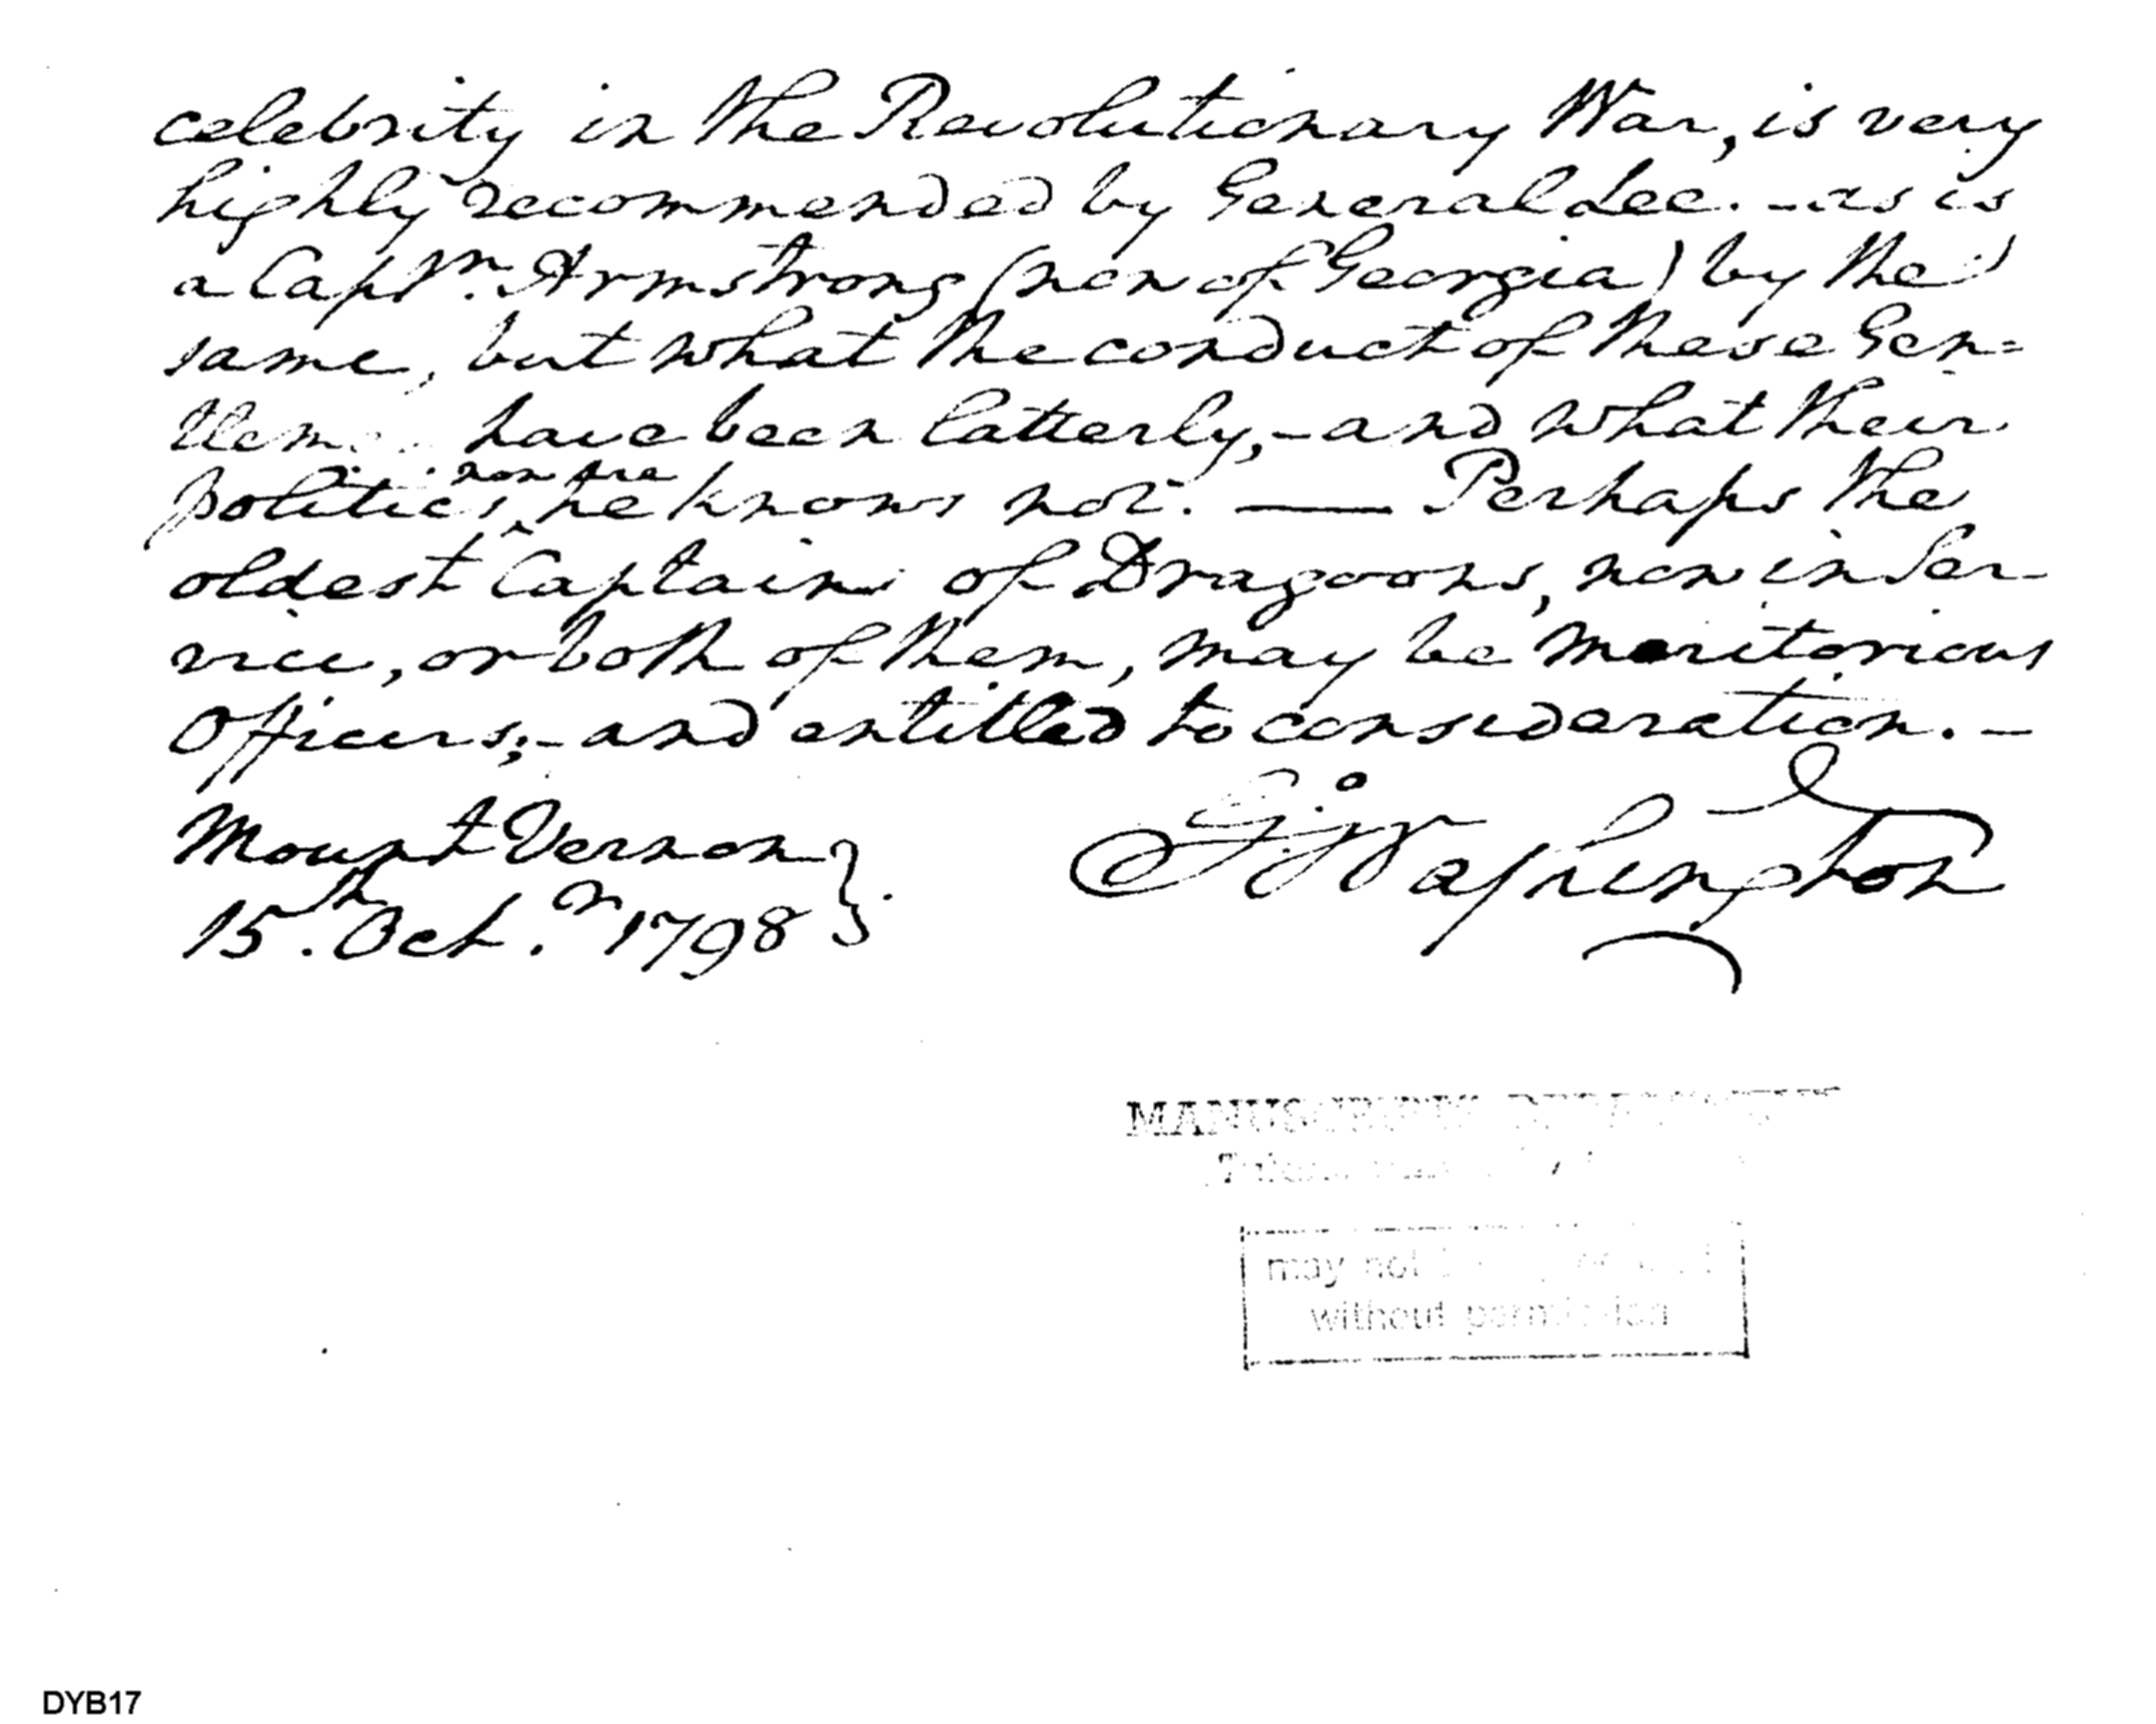 celebrity in the Revolutionary War, is very
highly recommended by General Lee. - as is
a Capt.n Armstrong (now of Georgia) by the
same, but what the conduct of these Gen=
tlemen have been latterly, - and what their
politics now are he knows not. — Perhaps the
oldest Captains of Dragoons, now in Ser-
vice, or both of them, may be meritorious
Officers; - and entitled to consideration. -
Mount Vernon
Go: Washington
15.th Oct.r 1798
MANUSCRIPTS DEPARTMENT
may not
without permission
DYB17